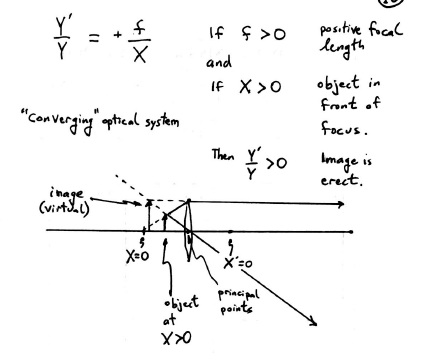 Y'/Y = + f/X If f > 0 positive focal length
and
If X > 0 object in front of focus.
"Converging" optical system
Then Y'/Y > 0 Image is erect.
image (virtual)
X=0
X'=0
object at X>0
principal points